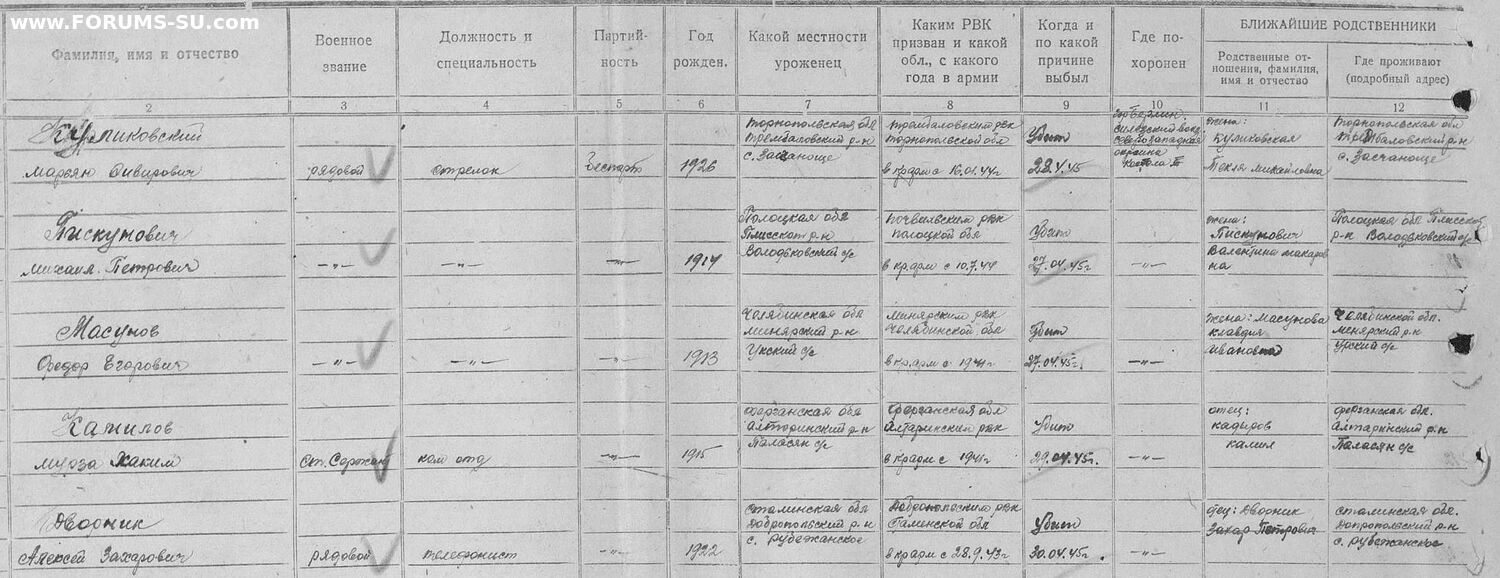 www.FORUMS-SU.com
Фамилия, имя и отчество
Военное звание
Должность и специальность
Партий-
ность
Год рожден.
Какой местности уроженец
Каким РВК призван и какой обл., с какого года в армии
Когда и по какой причине выбыл
Где по-
хоронен
БЛИЖАЙШИЕ РОДСТВЕННИКИ
Родственные от-
ношения, фамилия,
имя и отчество
Где проживают
(подробный адрес)
2 3 4 5 6 7 8 9 10 11 12
Куликовский
Марьян
рядовой
стрелок
1926
Торнопольская обл
Трембаловский р-н
Трембаловским рвк
Торнопольской обл
в кр арм с 16.01.44г
Убит
28.4.45
северо западная
окраина
жена:
Куликовская
Текля Михайловна
Торнопольская обл
Пискунович
Михаил Петрович
—"— —"— —"—
1914
Полоцкая обл
р-н
Володьковский с/с
полоцкой обл
в кр арм с 10.7.44
Убит
27.04.45г
—"—
жена:
Пискунович
Полоцкая обл
р-н Володьковский с/с
Масунов
Федор Егорович
—"— —"— —"—
1913
Челябинская обл
Минярский р-н
Укский с/с
Минярским рвк
Челябинской обл
в кр арм с 1941г
Убит
27.04.45г.
—"—
жена: Масунова
Клавдия
Ивановна
Челябинской обл.
Менярский р-н
Камилов
Мурза Хаким
ст. Сержант
ком отд
—"—
1915
Ферганская обл
Алторинский р-н
Паласян с/с
Ферганская обл
Алтаринским рвк
в кр арм с 1941г
Убит
29.04.45г.
—"—
отец:
Кадыров
Камил
Ферганская обл.
Алтаринский р-н
Паласян с/с
Дворник
Алексей Захарович
рядовой
телефонист
—"—
1922
Сталинская обл
Добропольский р-н
с. Рубежанское
Добропольским РВК
в кр арм с 28.9.43г
Убит
30.04.45г
—"—
отец: Дворник
Захар Петрович
Сталинская обл
с. Рубежанское